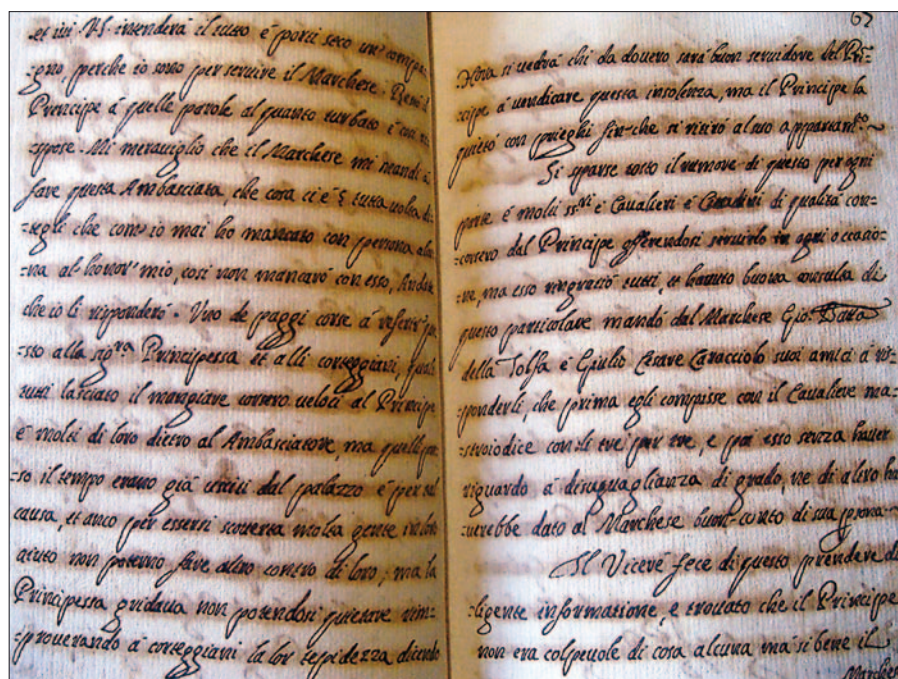 et iui V.S. intenderà il tutto è porti seco un' compa-
gno, perche io sono per seruire il Marchese. Restò il
Prencipe à quelle parole al quanto turbato è
spose. Mi merauiglio che il Marchese mi mandi à
fare questa Ambasciata, che cosa ci è tutta uolta di-
=tegli che com' io mai hò mancato con persona alcu-
=na al honor' mio, così non mancarò con esso, Andate
che io li risponderò. Vno de paggi corse à referir' que-
=sto alla sig.ra Principessa et alli corteggiani, quali
tutti lasciato il mangiare corsero ueloci al Principe
è molti di loro dietro al Ambasciatore, ma quelli
=so il tempo erano già usciti dal palazzo è per tal
causa, et anco per essersi scouerta molta gente in loro
aiuto non poterno fare altro contro di loro; ma la
Principessa gridaua non potendosi quietare rim-
=prouerando à corteggiani la lor tepidezza dicendo
62
Hora si uedrà chi da douero sarà buon seruidore del Pri-
cipe à uindicare questa insolenza, ma il Principe la
quietò con prieghi fin-che si ritirò al suo appartam.to
Si sparse tosto il rumore di questo per ogni
parte è molti ss.ri è Caualieri è Cittadini di qualità con-
=corsero dal Principe offerendosi seruirlo in ogni occasio-
ne, ma esso ringratiò tutti, et hauuto buona consulta di
questo particolare mandò dal Marchese Gio: Batta
della Tolfa è Giulio Cesare Caracciolo suoi amici à ris-
ponderli, che prima egli compisse con il Caualiere ma-
=stroiodice con li tre per tre, e poi esso senza hauer
riguardo à disuguaglianza di grado, ne di altro ha-
=uerebbe dato al Marchese buon-conto di sua persona
Il Vicerè fece di questo prendere di
ligente informatione, e trouato che il Principe
non era colpeuole di cosa alcuna mà si bene il
Marchese